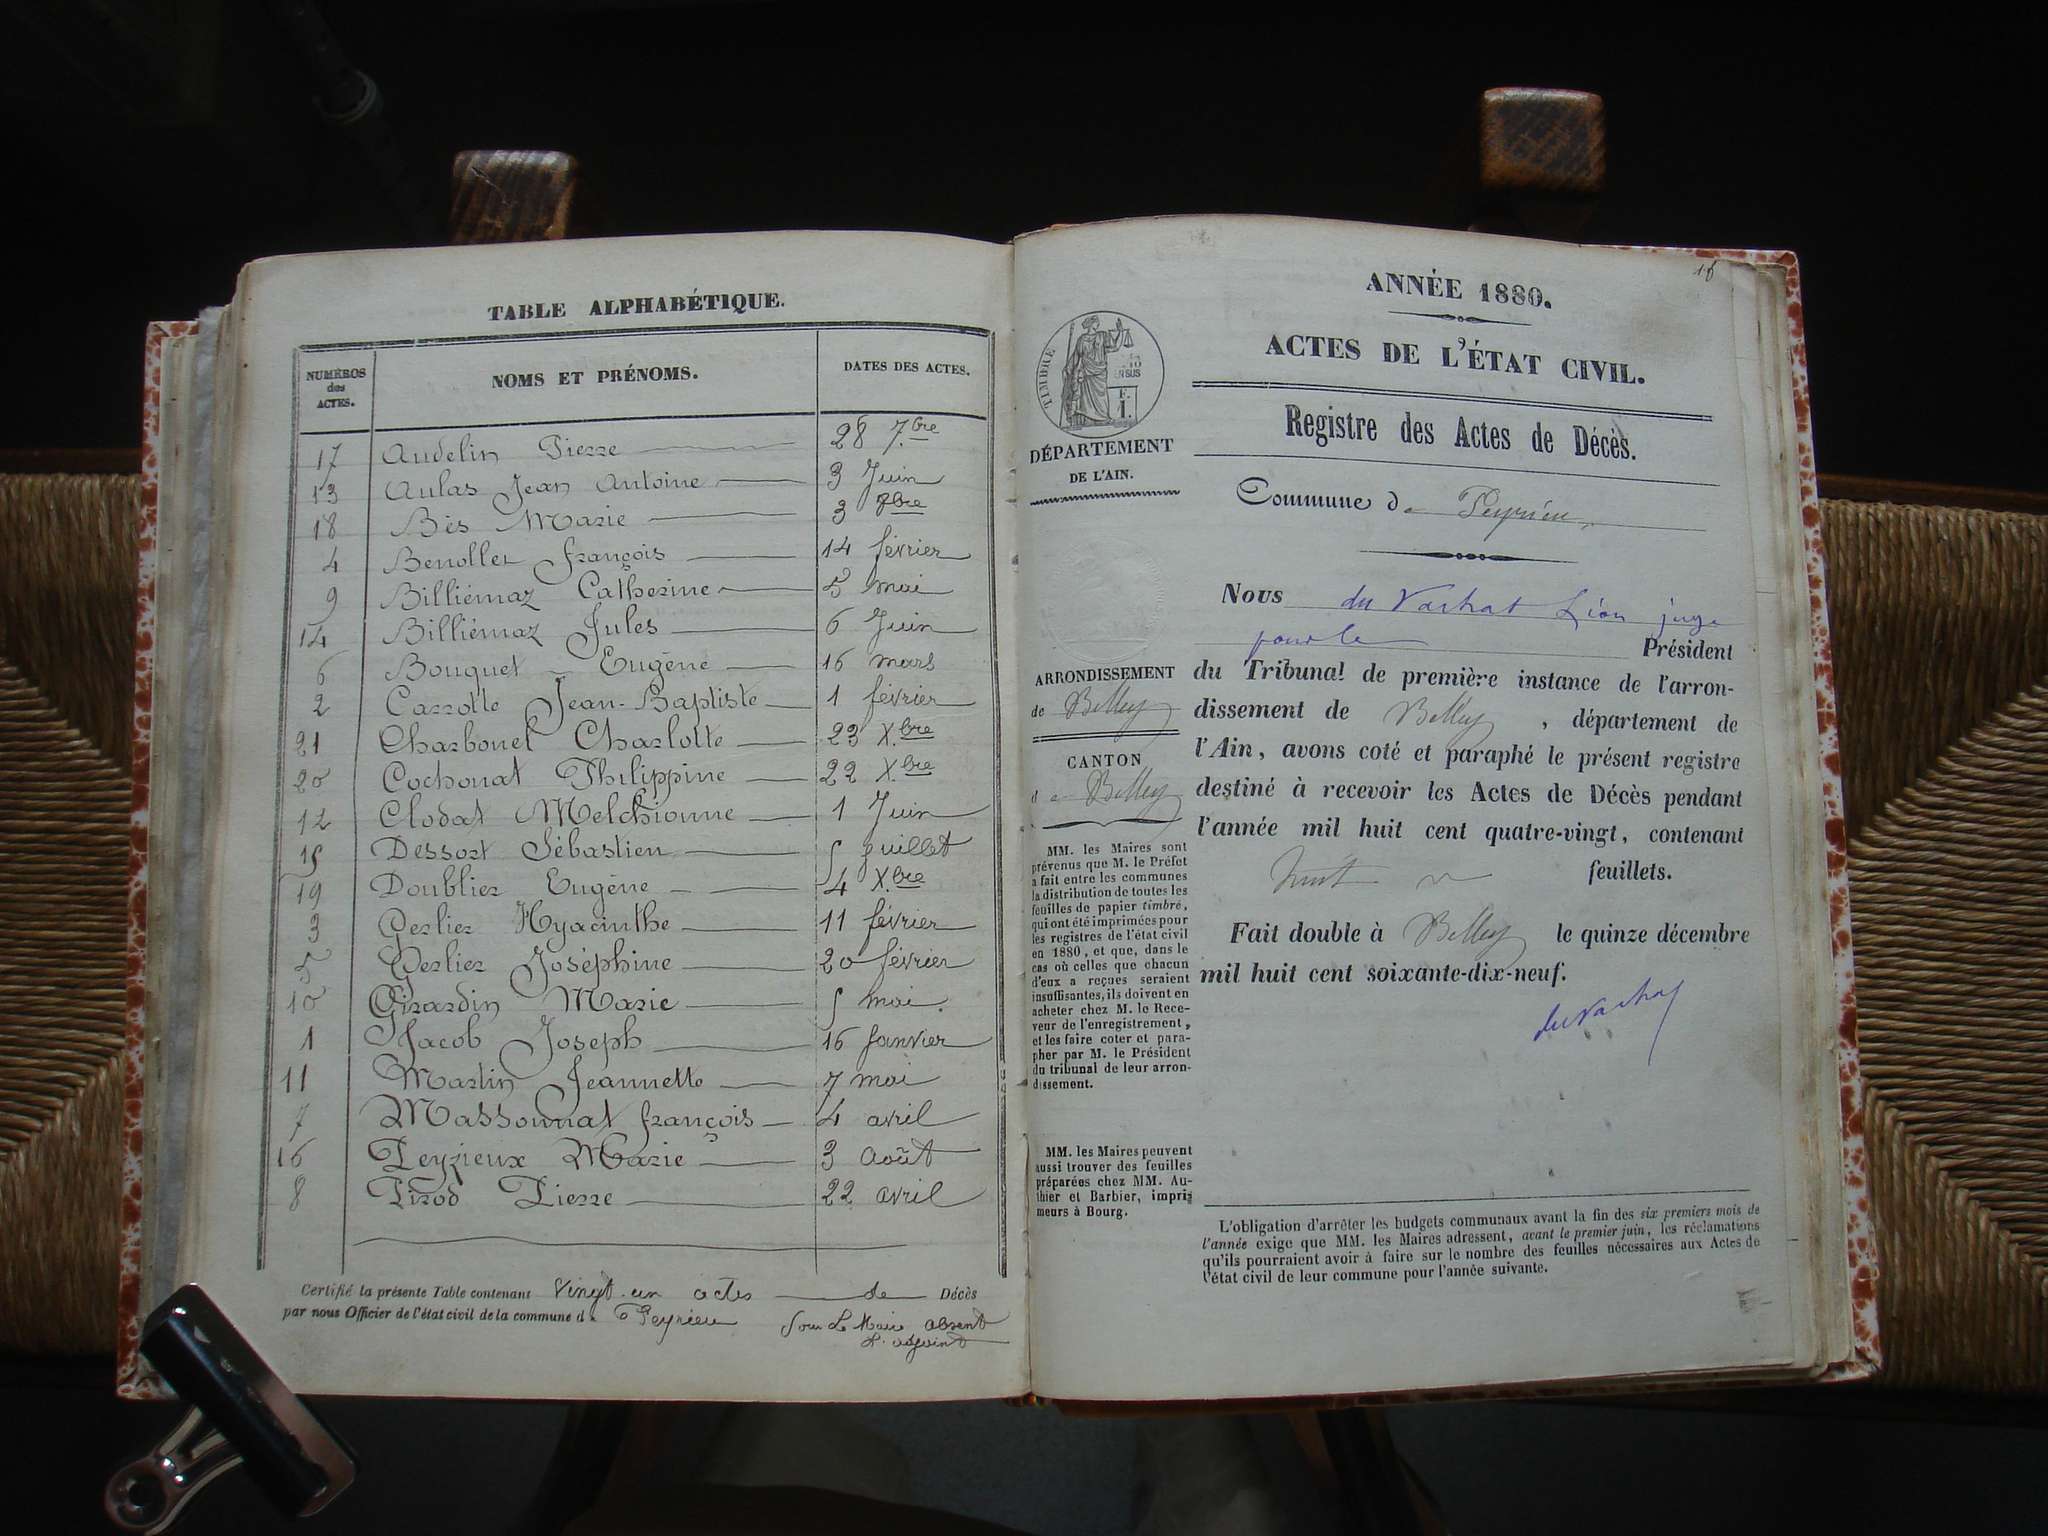 TABLE ALPHABÉTIQUE.
NUMÉROS des ACTES. NOMS ET PRÉNOMS. DATES DES ACTES.
17 Audelin Pierre 28 7.bre
13 Aulas Jean Antoine 3 Juin
18 Bès Marie 3 7bre
4 Benollet françois 14 février
9 Billiémaz Catherine 5 mai
14 Billiémaz Jules 6 Juin
6 Bouquet Eugène 16 mars
2 Carrotte Jean-Baptiste 1 février
21 Charbonet Charlotte 23 X.bre
20 Cochonat Philippine 22 X.bre
12 Clodat Melchionne 1 Juin
15 Dessort Sébastien 5 juillet
19 Doublier Eugène 4 X.bre
3 Gerlier Hyacinthe 11 février
5 Gerlier Joséphine 20 février
10 Girardin Marie 5 mai
1 Jacob Joseph 16 Janvier
11 Martin Jeannette 7 mai
7 Massonnat françois 4 avril
16 Peyrieux Marie 3 Août
8 Pirod Pierre 22 avril
Certifié la présente Table contenant Vingt-un actes de Décès
par nous Officier de l'état civil de la commune de Peyrieu
Pour Le Maire absent
L'adjoint
15
ANNÉE 1880.
ACTES DE L'ÉTAT CIVIL.
Registre des Actes de Décès.
Commune de Peyrieu
TIMBRE
F. 1.
DÉPARTEMENT
DE L'AIN.
ARRONDISSEMENT
de Belley
CANTON
de Belley
MM. les Maires sont
prévenus que M. le Préfet
a fait entre les communes
la distribution de toutes les
feuilles de papier timbré,
qui ont été imprimées pour
les registres de l'état civil
en 1880, et que, dans le
cas où celles que chacun
d'eux a reçues seraient
insuffisantes, ils doivent en
acheter chez M. le Rece-
veur de l'enregistrement,
et les faire coter et para-
pher par M. le Président
du tribunal de leur arron-
dissement.
MM. les Maires peuvent
aussi trouver des feuilles
préparées chez MM. Au-
thier et Barbier, impri-
meurs à Bourg.
Nous du Vachat Léon juge
pour le Président
du Tribunal de première instance de l'arron-
dissement de Belley, département de
l'Ain, avons coté et paraphé le présent registre
destiné à recevoir les Actes de Décès pendant
l'année mil huit cent quatre-vingt, contenant
huit feuillets.
Fait double à Belley le quinze décembre
mil huit cent soixante-dix-neuf.
du Vachat
L'obligation d'arrêter les budgets communaux avant la fin des six premiers mois de
l'année exige que MM. les Maires adressent, avant le premier juin, les réclamations
qu'ils pourraient avoir à faire sur le nombre des feuilles nécessaires aux Actes de
l'état civil de leur commune pour l'année suivante.